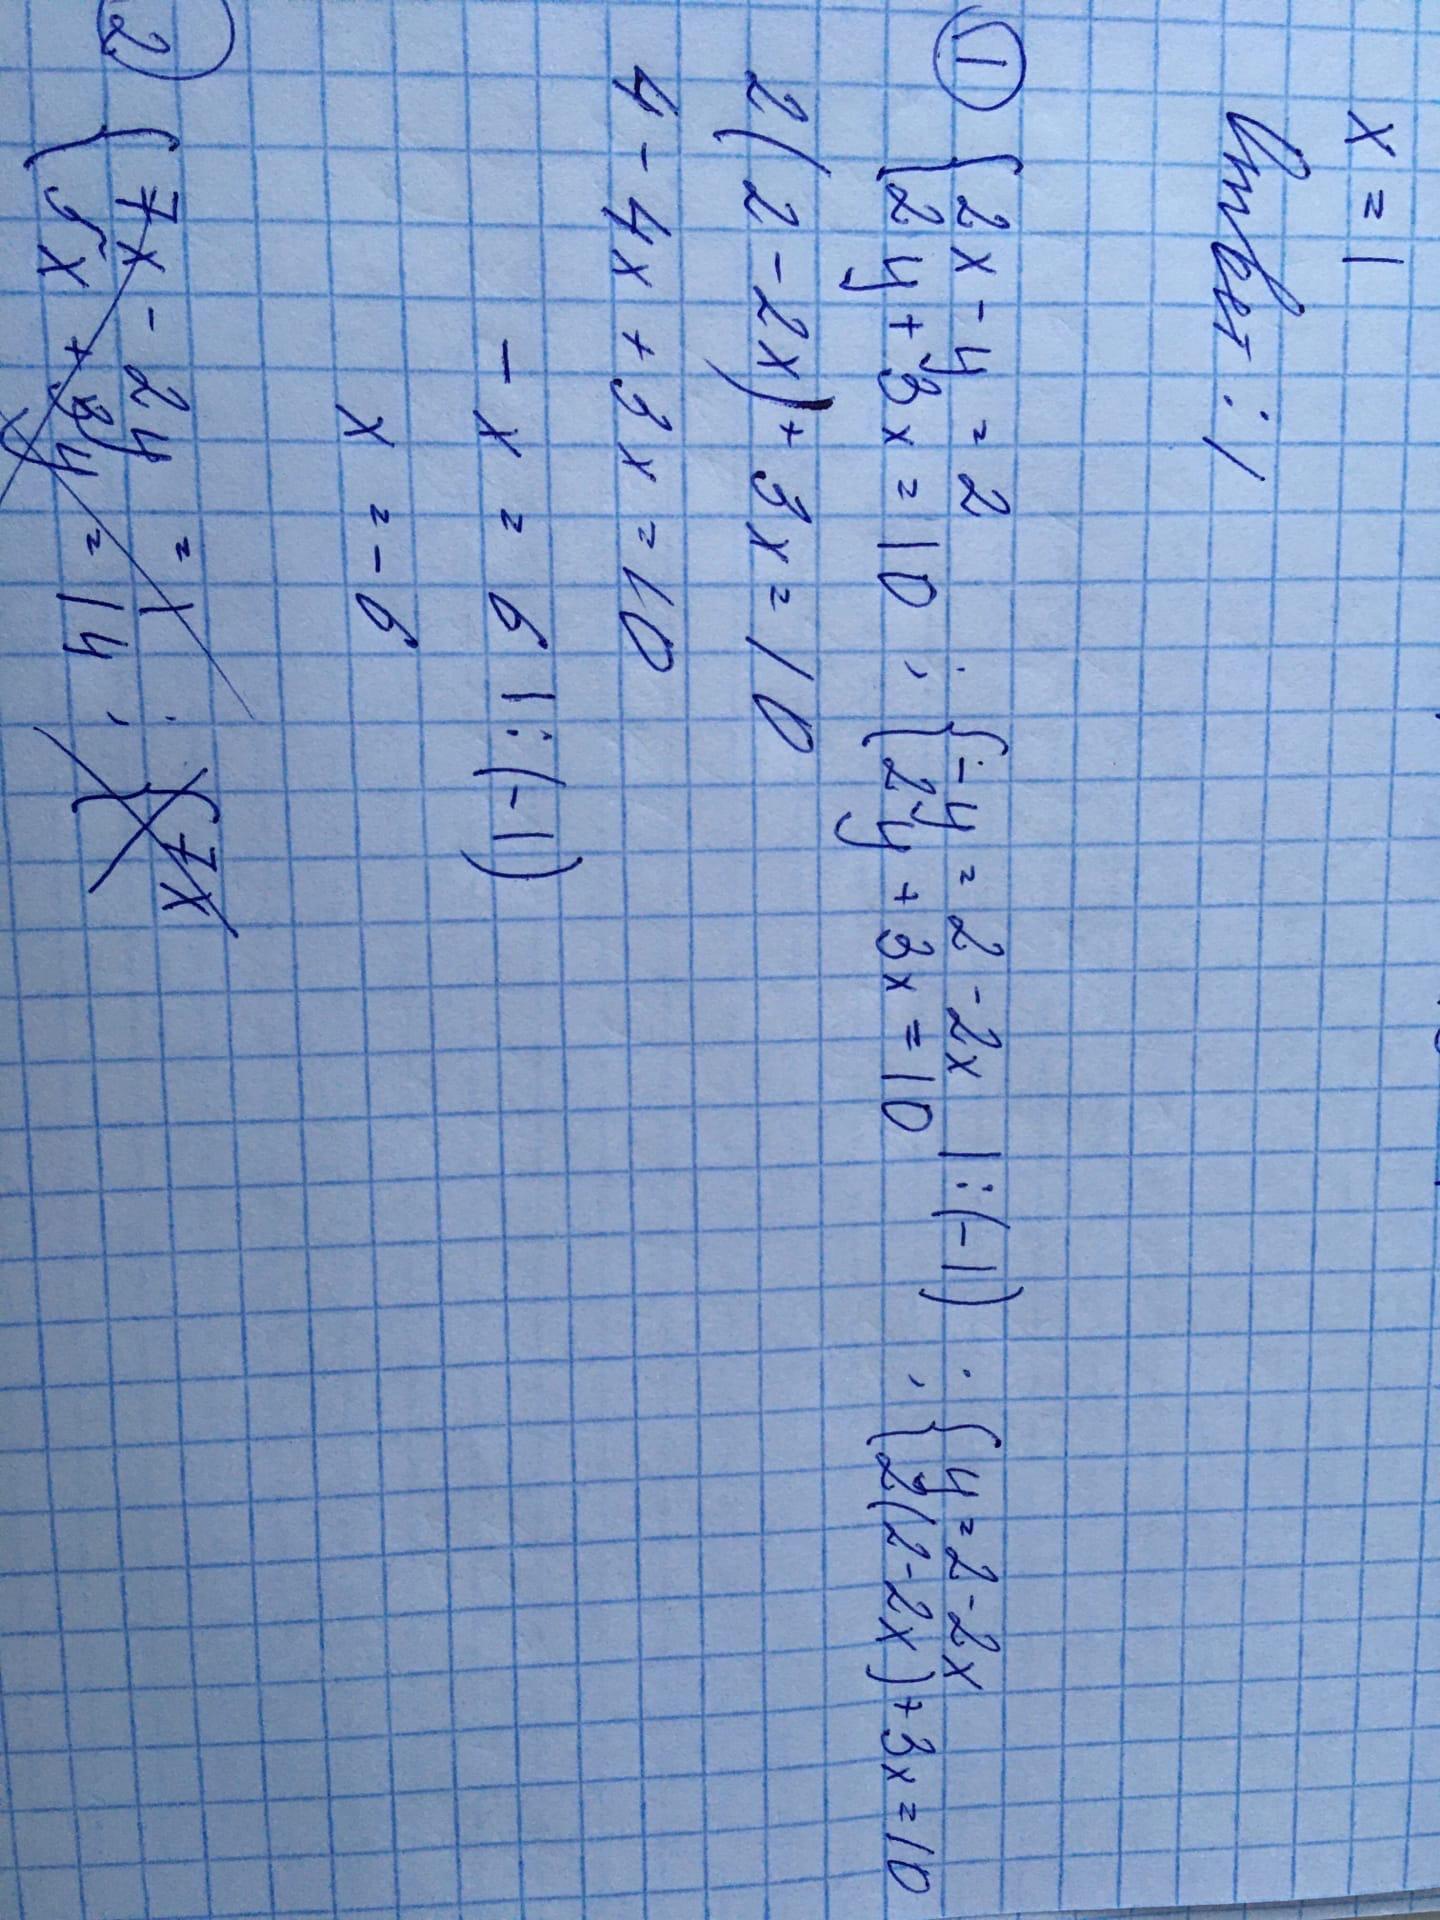 x = 1
Ответ: 1
① { 2x - y = 2 ; { -y = 2 - 2x |:(-1) ; { y = 2 - 2x
{ 2y + 3x = 10 { 2y + 3x = 10 { 2(2 - 2x) + 3x = 10
2(2 - 2x) + 3x = 10
4 - 4x + 3x = 10
- x = 6 |:(-1)
x = - 6
② { 7x - 2y = 1 ; { 7x
{ 5x + 3y = 14